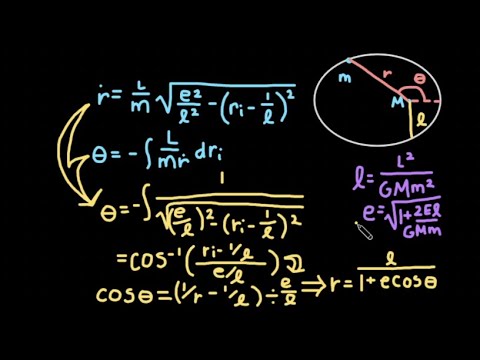 ṙ = L/m √(e²/ℓ² − (rᵢ − 1/ℓ)²)
θ = −∫ L/mṙ drᵢ
θ = −∫ 1/√((e/ℓ)² − (rᵢ − 1/ℓ)²)
= cos⁻¹((rᵢ − 1/ℓ)/(e/ℓ))
cosθ = (1/r − 1/ℓ) ÷ e/ℓ ⇒ r = ℓ/(1 + e cosθ)
m
r
θ
M
ℓ
ℓ = L²/GMm²
e = √(1 + 2Eℓ/GMm)